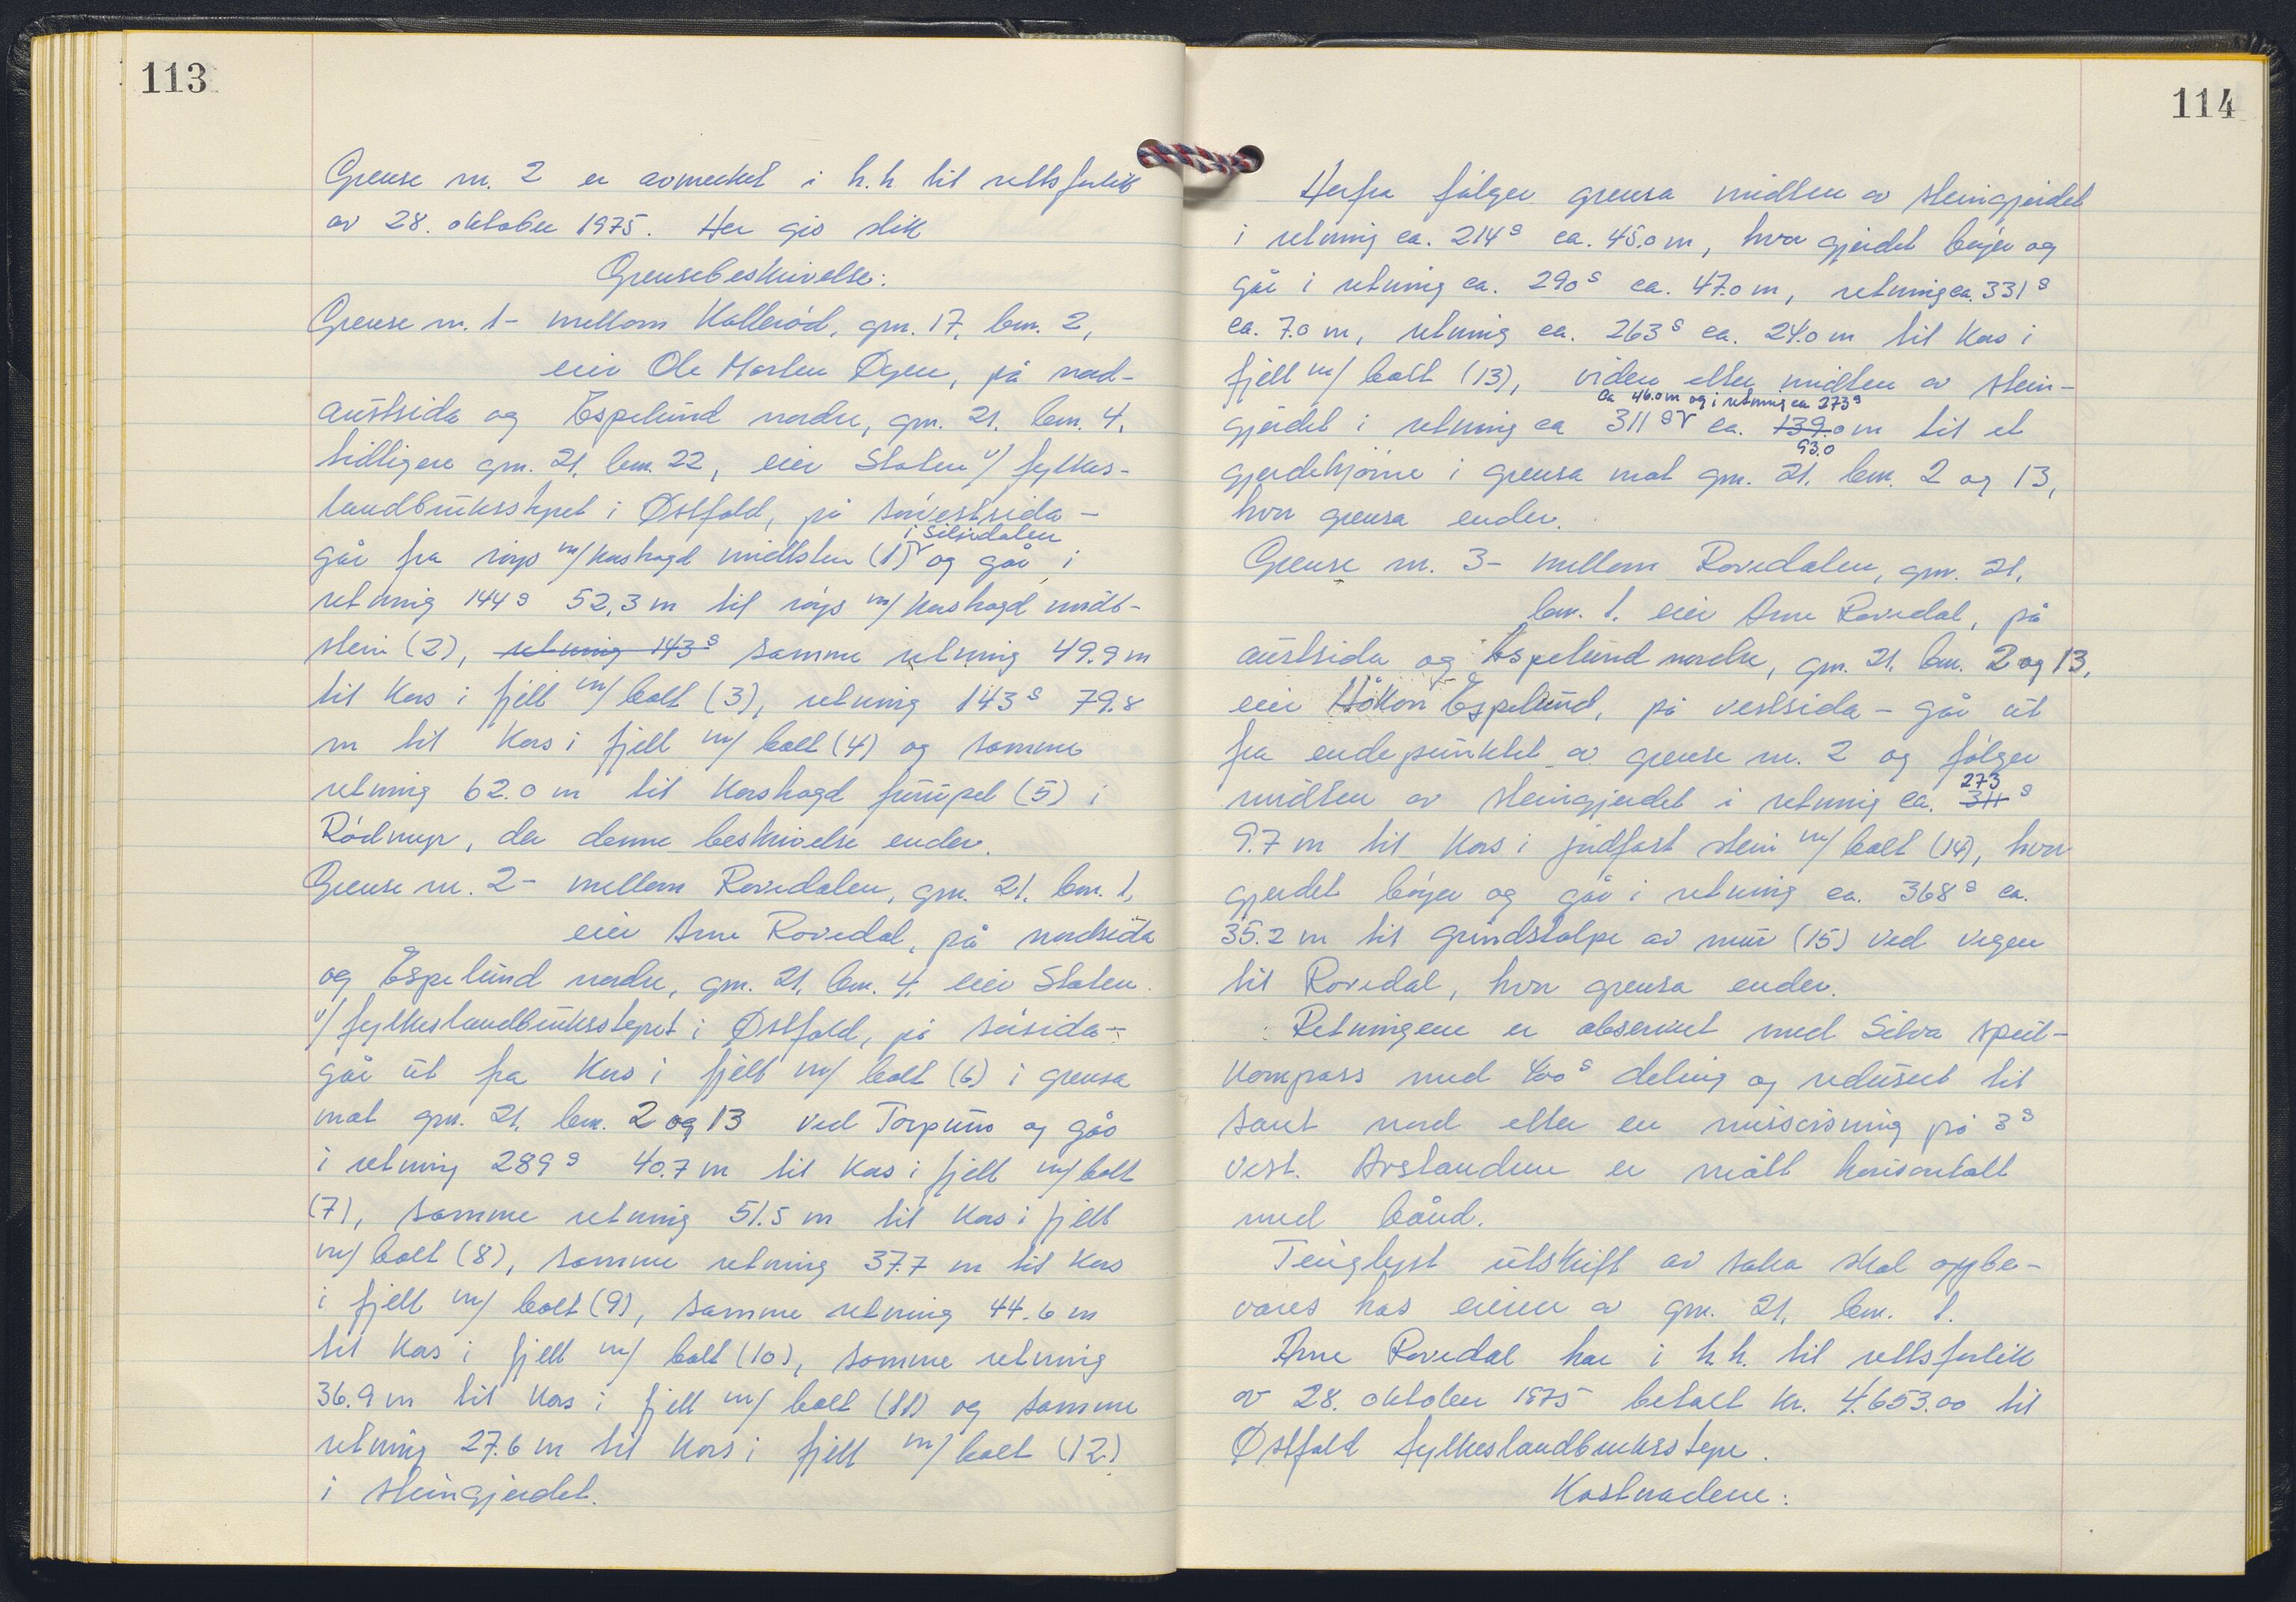 113
Grense nr. 2 er avmerket i h.h. til rettsforlik
av 28. oktober 1975. Her gis slik
Grensebeskrivelse:
Grense nr. 1- mellom Kallerød, gnr. 17, bnr. 2,
eier Ole Morten Øyen, på nord-
austsida og Espelund nordre, gnr. 21. bnr. 4.
tidligere gnr. 21. bnr. 22, eier Staten v/ fylkes-
landbruksstyret i Østfold, på sørvestsida -
i Silsidalen
går fra røys m/ krosshogd midtsten (1) og går i
retning 144g 52,3 m til røys m/ krosshogd midt-
stein (2), retning 143g samme retning 49.9 m
til kors i fjell m/ bolt (3), retning 143g 79.8
m til kors i fjell m/ bolt (4) og samme
retning 62.0 m til korshogd furupel (5) i
Rødmyr, der denne beskrivelse ender.
Grense nr. 2- mellom Rovedalen, gnr. 21. bnr. 1,
eier Arne Rovedal, på nordsida
og Espelund nordre, gnr. 21. bnr. 4, eier Staten
v/ fylkeslandbruksstyret i Østfold, på sørsida -
går ut fra kors i fjell m/ bolt (6) i grensa
mot gnr. 21. bnr. 2 og 13 ved Torpum og går
i retning 289g 40.7 m til kors i fjell m/ bolt
(7), samme retning 51.5 m til kors i fjell
m/ bolt (8), samme retning 37.7 m til kors
i fjell m/ bolt (9), samme retning 44.6 m
til kors i fjell m/ bolt (10), samme retning
36.9 m til kors i fjell m/ bolt (11) og samme
retning 27.6 m til kors i fjell m/ bolt (12)
i steingjerdet.
114
Herfra følger grensa midten av steingjerdet
i retning ca. 214g ca. 45.0 m, hvor gjerdet bøyer og
går i retning ca. 290g ca. 47.0 m, retning ca. 331g
ca. 7.0 m, retning ca. 263g ca. 24.0 m til kors i
fjell m/ bolt (13), videre etter midten av stein-
ca 46.0 m og i retning ca 273g
gjerdet i retning ca 311g ca. 139.0 m til et
93.0
gjerdehjørne i grensa mot gnr. 21. bnr. 2 og 13,
hvor grensa ender.
Grense nr. 3- mellom Rovedalen, gnr. 21.
bnr. 1. eier Arne Rovedal, på
austsida og Espelund nordre, gnr. 21. bnr. 2 og 13,
eier Håkon Espelund, på vestsida - går ut
fra endepunktet av grense nr. 2 og følger
273
midten av steingjerdet i retning ca. 311 g
9.7 m til kors i jordfast stein m/ bolt (14), hvor
gjerdet bøyer og går i retning ca. 368g ca.
35.2 m til grindstolpe av mur (15) ved vegen
til Rovedal, hvor grensa ender.
Retningene er observert med Silva speil-
kompass med 400g deling og redusert til
sant nord etter en misvisning på 3g
vest. Avstandene er målt horisontalt
med bånd.
Tinglyst utskrift av saka skal oppbe-
vares hos eieren av gnr. 21, bnr. 1.
Arne Rovedal har i h.h. til rettsforlik
av 28. oktober 1975 betalt kr. 4.653.00 til
Østfold fylkeslandbruksstyre.
Kostnadene: